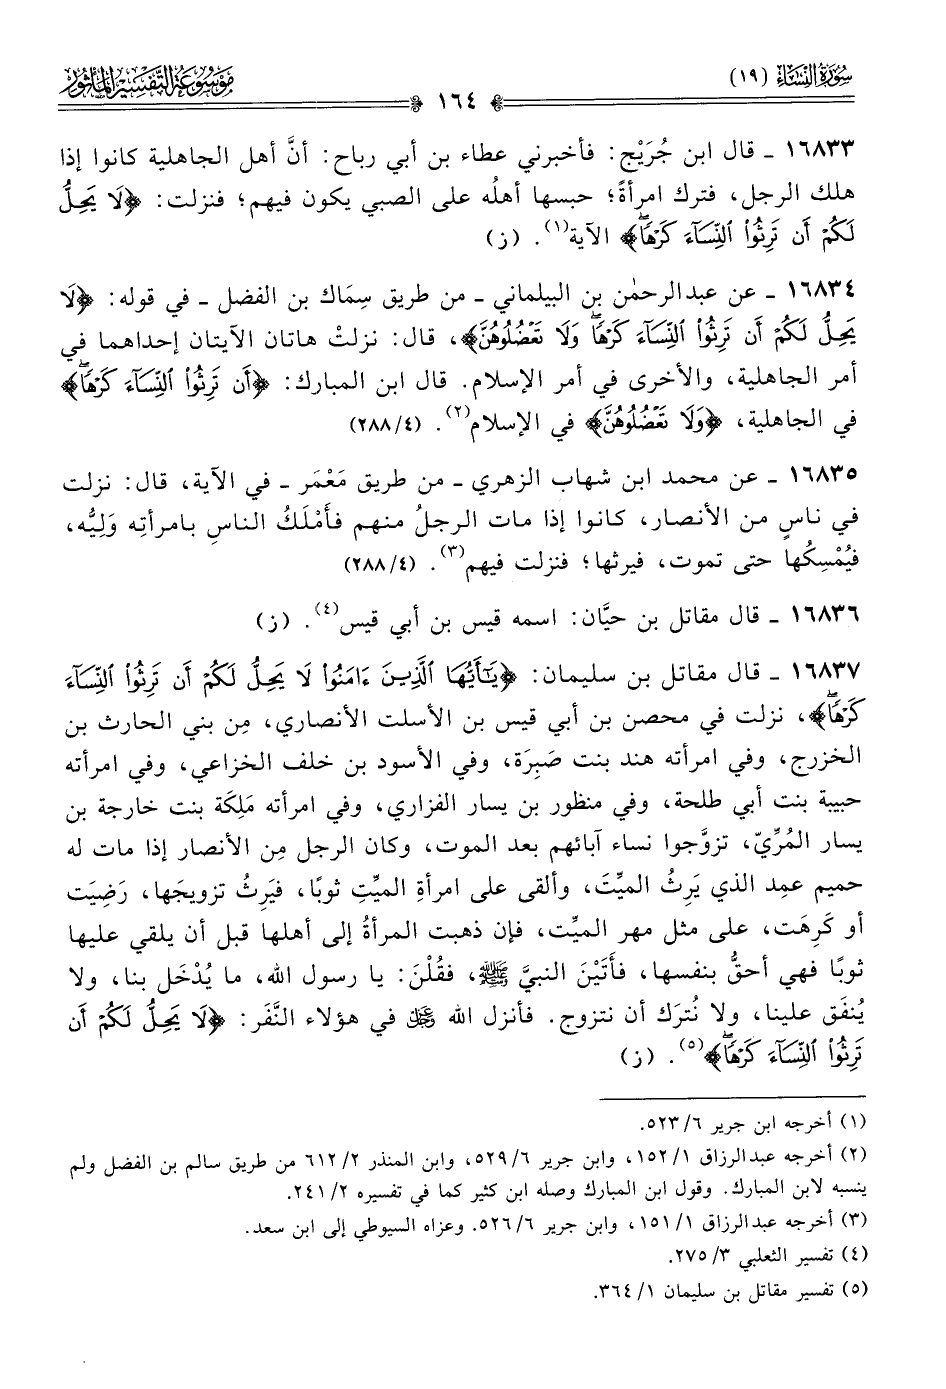 سُورَةُ النِّسَاءِ (١٩)
مَوْسُوعَةُ التَّفْسِيرِ المَأْثُور
١٦٤
١٦٨٣٣ ـ قال ابن جُرَيْج: فأخبرني عطاء بن أبي رباح: أنَّ أهل الجاهلية كانوا إذا
هلك الرجل، فترك امرأةً؛ حبسها أهلُه على الصبي يكون فيهم؛ فنزلت: ﴿لَا يَحِلُّ
لَكُمْ أَن تَرِثُوا۟ ٱلنِّسَآءَ كَرْهًاۖ﴾ الآية(١). (ز)
١٦٨٣٤ ـ عن عبدالرحمٰن بن البيلماني ـ من طريق سِمَاك بن الفضل ـ في قوله: ﴿لَا
يَحِلُّ لَكُمْ أَن تَرِثُوا۟ ٱلنِّسَآءَ كَرْهًاۖ وَلَا تَعْضُلُوهُنَّ﴾، قال: نزلتْ هاتان الآيتان إحداهما في
أمر الجاهلية، والأخرى في أمر الإسلام. قال ابن المبارك: ﴿أَن تَرِثُوا۟ ٱلنِّسَآءَ كَرْهًاۖ﴾
في الجاهلية، ﴿وَلَا تَعْضُلُوهُنَّ﴾ في الإسلام(٢). (٢٨٨/٤)
١٦٨٣٥ ـ عن محمد ابن شهاب الزهري ـ من طريق مَعْمَر ـ في الآية، قال: نزلت
في ناسٍ من الأنصار، كانوا إذا مات الرجلُ منهم فأَمْلَكُ الناسِ بامرأتِه وَلِيُّه،
فيُمْسِكُها حتى تموت، فيرثها؛ فنزلت فيهم(٣). (٢٨٨/٤)
١٦٨٣٦ ـ قال مقاتل بن حيَّان: اسمه قيس بن أبي قيس(٤). (ز)
١٦٨٣٧ ـ قال مقاتل بن سليمان: ﴿يَـٰٓأَيُّهَا ٱلَّذِينَ ءَامَنُوا۟ لَا يَحِلُّ لَكُمْ أَن تَرِثُوا۟ ٱلنِّسَآءَ
كَرْهًاۖ﴾، نزلت في محصن بن أبي قيس بن الأسلت الأنصاري، مِن بني الحارث بن
الخزرج، وفي امرأته هند بنت صَبِرَة، وفي الأسود بن خلف الخزاعي، وفي امرأته
حبيبة بنت أبي طلحة، وفي منظور بن يسار الفزاري، وفي امرأته مَلِكَة بنت خارجة بن
يسار المُرِّيّ، تزوَّجوا نساء آبائهم بعد الموت، وكان الرجل مِن الأنصار إذا مات له
حميم عمِد الذي يَرِثُ الميِّتَ، وألقى على امرأةِ الميِّتِ ثوبًا، فيَرِثُ تزويجَها، رَضِيَت
أو كَرِهَت، على مثل مهر الميِّت، فإن ذهبت المرأةُ إلى أهلها قبل أن يلقي عليها
ثوبًا فهي أحقُّ بنفسها، فأَتَيْنَ النبيَّ ﷺ، فقُلْنَ: يا رسول الله، ما يُدْخَل بنا، ولا
يُنفَق علينا، ولا نُترَك أن نتزوج. فأنزل الله ﷿ في هؤلاء النَّفَر: ﴿لَا يَحِلُّ لَكُمْ أَن
تَرِثُوا۟ ٱلنِّسَآءَ كَرْهًاۖ﴾(٥). (ز)
(١) أخرجه ابن جرير ٦/ ٥٢٣.
(٢) أخرجه عبدالرزاق ١/ ١٥٢، وابن جرير ٦/ ٥٢٩، وابن المنذر ٢/ ٦١٢ من طريق سالم بن الفضل ولم
ينسبه لابن المبارك. وقول ابن المبارك وصله ابن كثير كما في تفسيره ٢/ ٢٤١.
(٣) أخرجه عبدالرزاق ١/ ١٥١، وابن جرير ٦/ ٥٢٦. وعزاه السيوطي إلى ابن سعد.
(٤) تفسير الثعلبي ٣/ ٢٧٥.
(٥) تفسير مقاتل بن سليمان ١/ ٣٦٤.